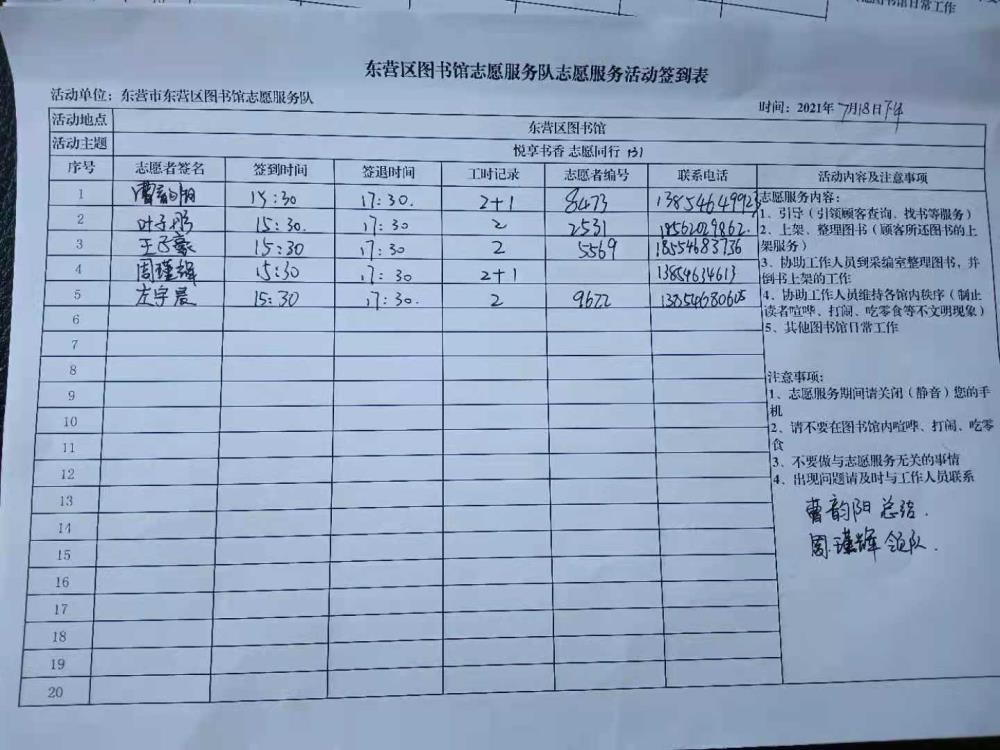 图书馆日常工作
东营区图书馆志愿服务队志愿服务活动签到表
活动单位：东营市东营区图书馆志愿服务队
时间：2021年7月18日下午
活动地点 东营区图书馆
活动主题 悦享书香 志愿同行 131
序号 志愿者签名 签到时间 签退时间 工时记录 志愿者编号 联系电话 活动内容及注意事项
1 曹韵阳 15:30 17:30. 2+1 8473 13854649923
2 叶子彤 15:30. 17:30 2 2531 18562029862.
3 王子豪 15:30 17:30 2 5569 18554683736
4 周瑾辉 15:30 17:30 2+1 13854634613
5 左宇晨 15:30 17:30. 2 9622 13854680605
6
7
8
9
10
11
12
13
14
15
16
17
18
19
20
志愿服务内容：
1、引导（引领顾客查询、找书等服务）
2、上架、整理图书（顾客所还图书的上
架服务）
3、协助工作人员到采编室整理图书，并
倒书上架的工作
4、协助工作人员维持各馆内秩序（制止
读者喧哗、打闹、吃零食等不文明现象）
5、其他图书馆日常工作
注意事项：
1、志愿服务期间请关闭（静音）您的手
机
2、请不要在图书馆内喧哗、打闹、吃零
食
3、不要做与志愿服务无关的事情
4、出现问题请及时与工作人员联系
曹韵阳 总结.
周瑾辉 领队.